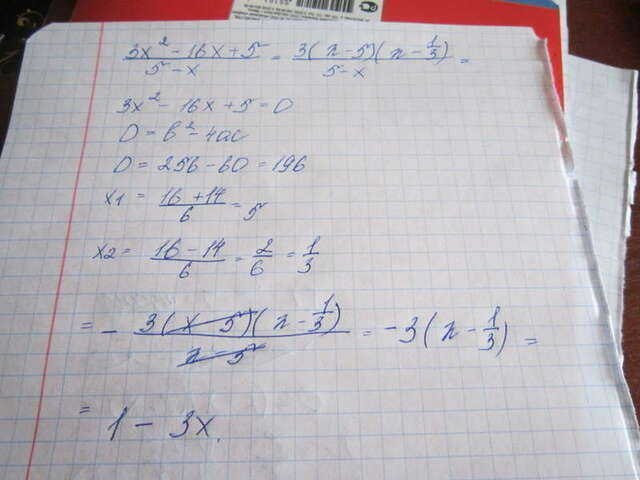 3x² - 16x + 5 / 5 - x = 3(x - 5)(x - 1/3) / 5 - x =
3x² - 16x + 5 = 0
D = b² - 4ac
D = 256 - 60 = 196
x1 = 16 + 14 / 6 = 5
x2 = 16 - 14 / 6 = 2/6 = 1/3
= - 3(x - 5)(x - 1/3) / x - 5 = -3(x - 1/3) =
= 1 - 3x.